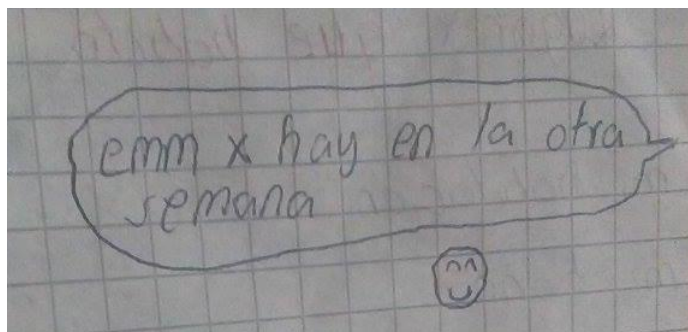 emm x hay en la otra
semana